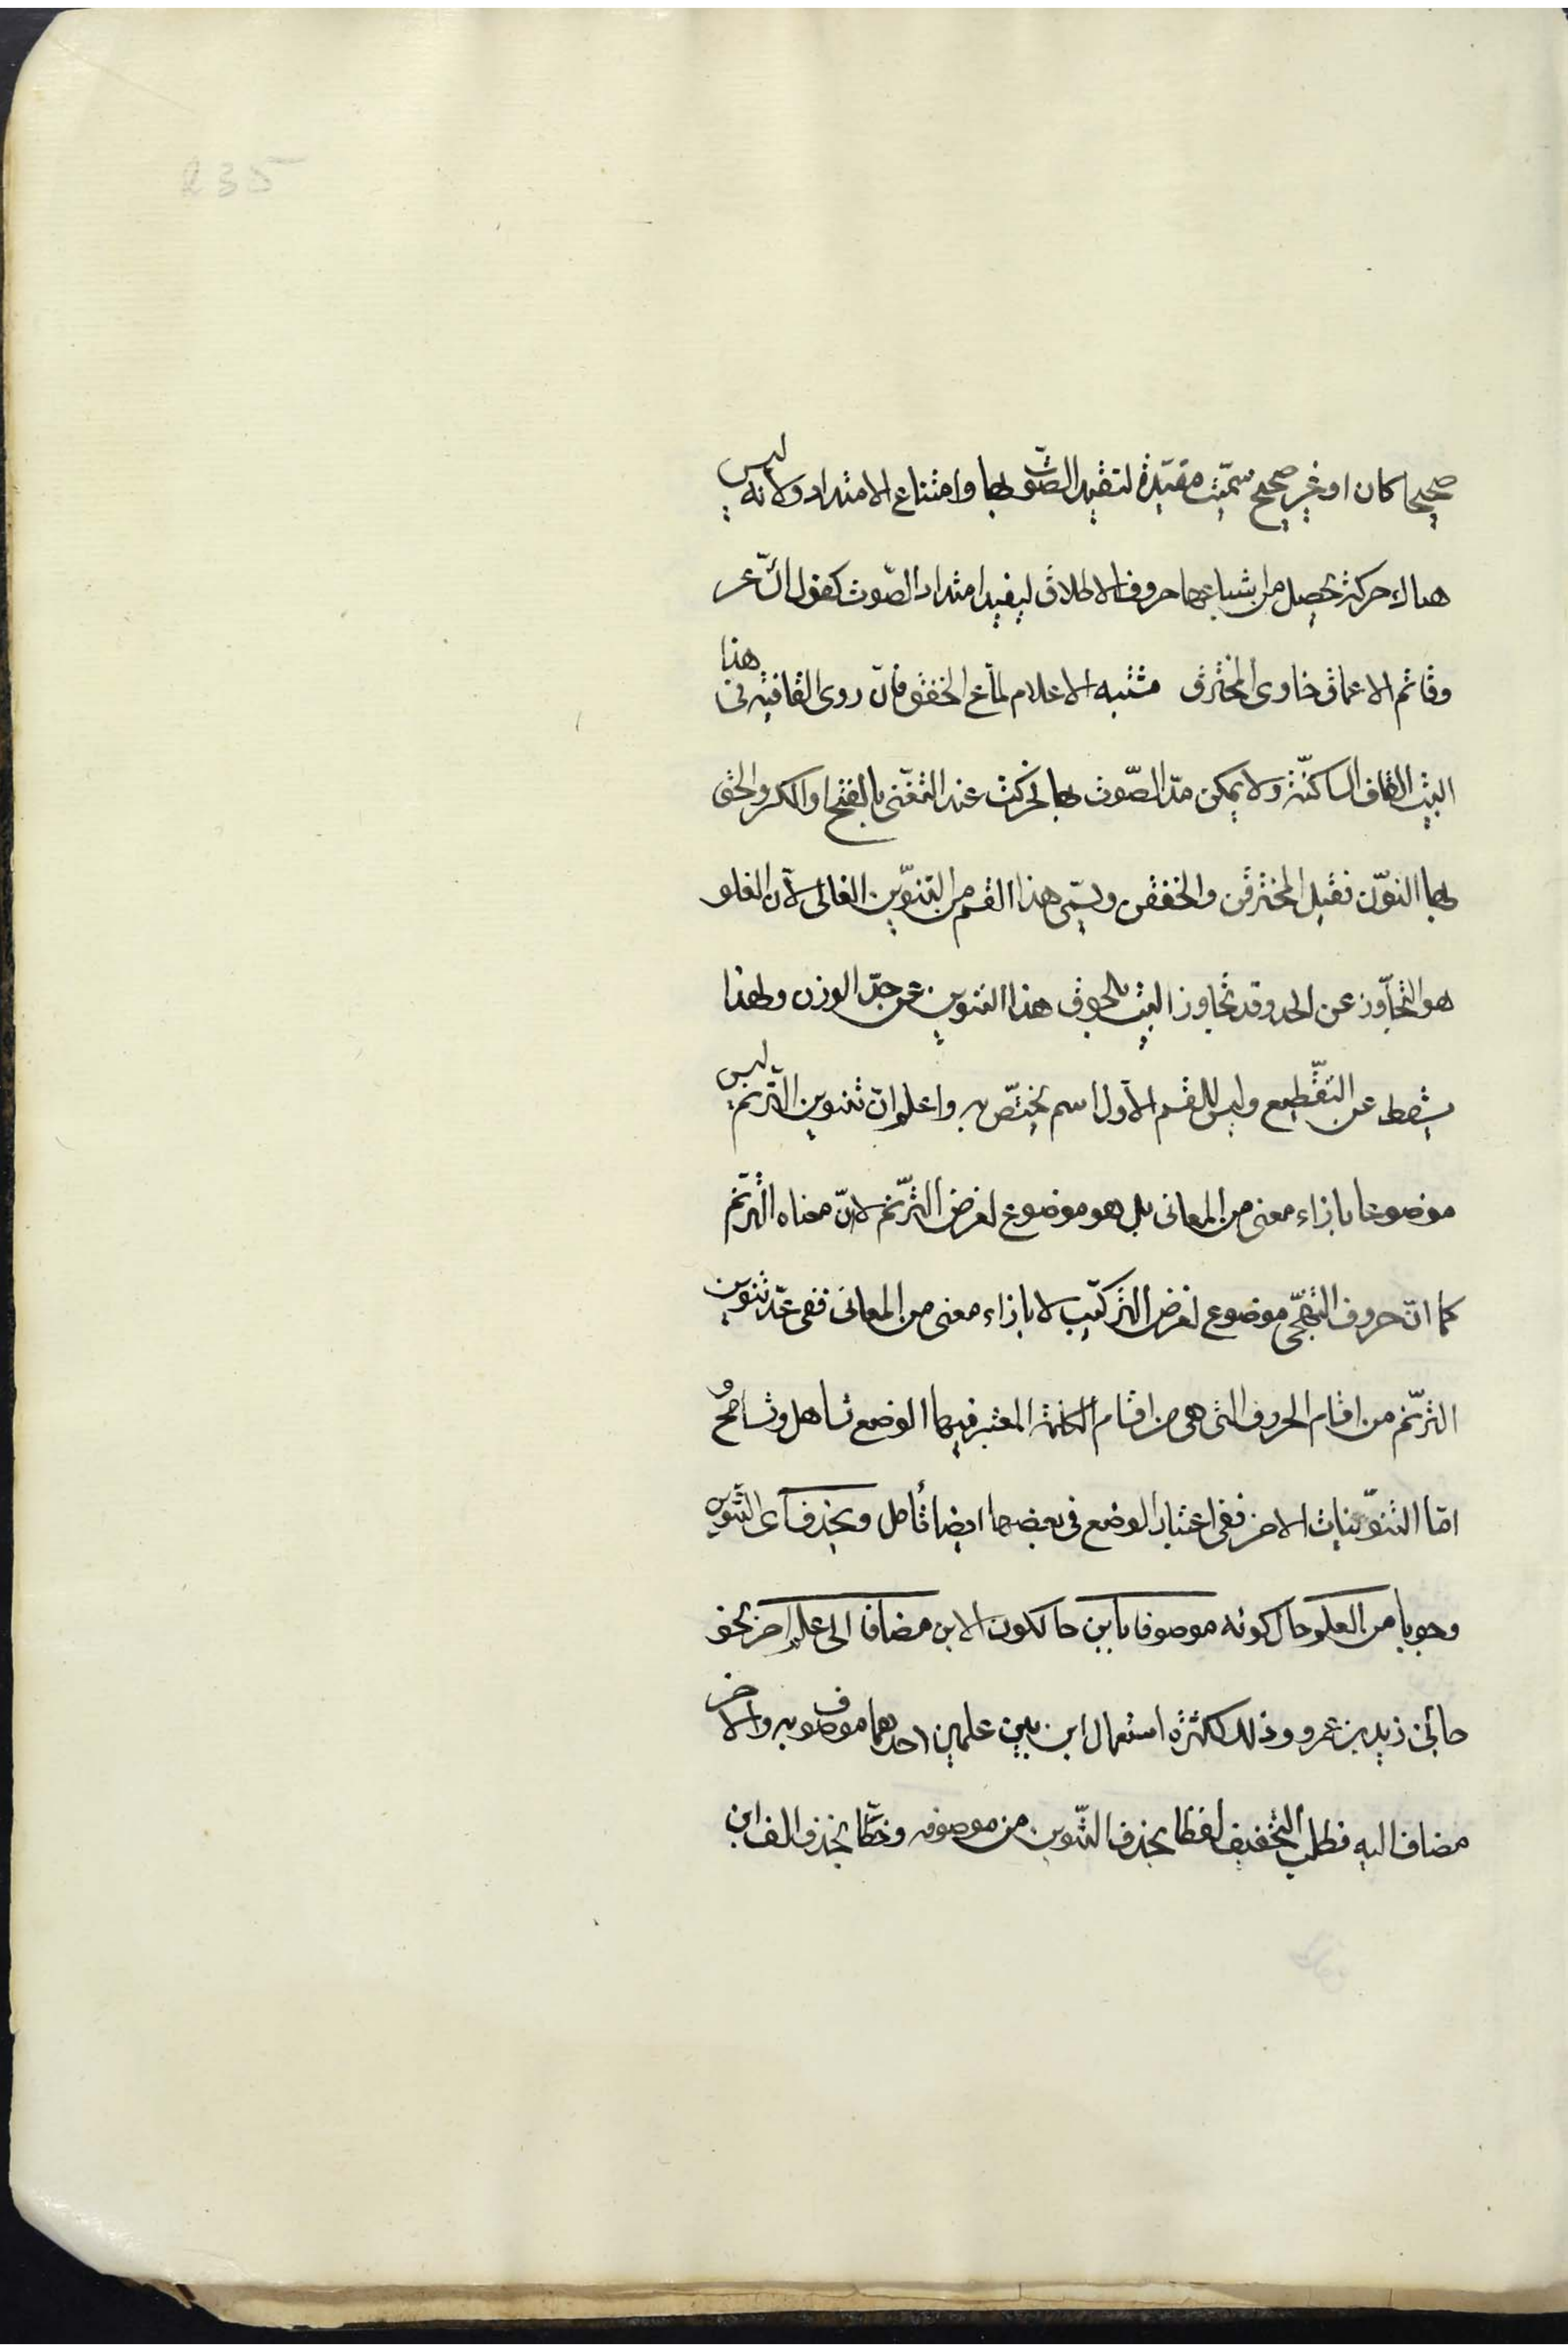 235
صحيحا كان او غير صحيح سمّيت مقيّدة لتقيد الصّوت بها وامتناع الامتداد ولانه ليس
هناك حركة تحصل من اشباعها حروف الاطلاق ليفيد امتداد الصّوت كقول الشّاعر
وقاتم الاعماق خاوى المخترق مشتبه الاعلام لمّاع الخفق فانّ روى القافية فى هذا
البيت القاف الساكنة ولا يمكن مدّ الصّوت بها فحركت عند التغنّى بالفتح او الكسر والحق
بها النّون فقيل المخترقن والخفقن ويسمّى هذا القسم من التنوّين الغالى لانّ الغلو
هو التجاوز عن الحد وقد تجاوز البيت بلحوق هذا التنوين عن حدّ الوزن ولهذا
يسقط عن التّقطيع وليس للقسم الاول اسم يختصّ به واعلم انّ تنوين التّرنم ليس
موضوعا بازاء معنى من المعانى بل هو موضوع لغرض التّرنّم لانّ معناه التّرنّم
كما انّ حروف التّهجّى موضوع لغرض التّركيب لا بازاء معنى من المعانى ففى عدّ تنوين
التّرنّم من اقسام الحروف التى هى من اقسام الكلمة المعتبر فيها الوضع تساهل وتسامح
امّا التنوّينات الاخر ففى اعتبار الوضع فى بعضها ايضا تأمل ويحذف اى التّنوين
وجوبا من العلم حال كونه موصوفا بابن حال كون الابن مضافا الى علم اخر نحو
جائنى زيد بن عمرو وذلك لكثرة استعمال ابن بين علمين احدهما موصوف به والاخر
مضاف اليه فطلب التّخفيف لفظا بحذف التّنوين من موصوفه وخطّا بحذف الف ابن